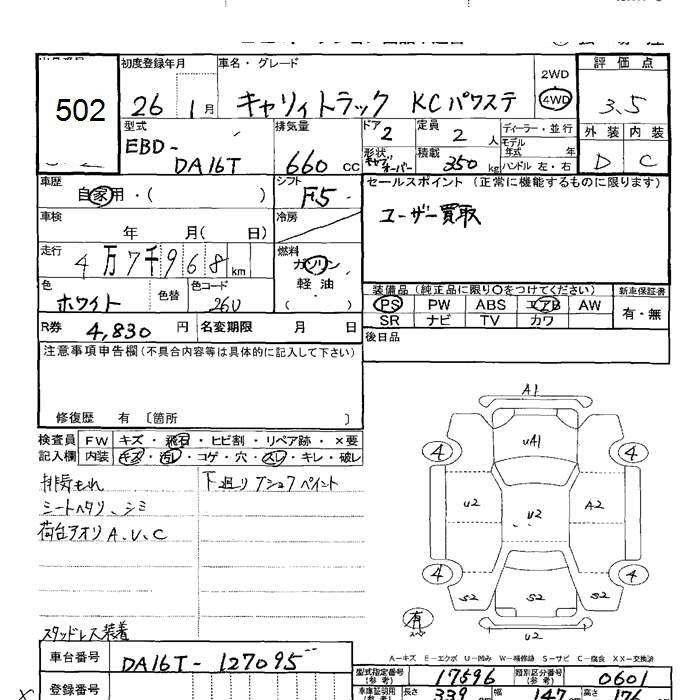 502
初度登録年月 車名・グレード
26 1月 キャリイトラック KCパワステ
2WD
4WD
評価点
3.5
外装 内装
D C
型式 排気量 ドア 定員
EBD-
DA16T 660 CC
2 2人
形状 積載 350 kg
ディーラー・並行
モデル年式 年
ハンドル 左・右
車歴 自家用・( )
シフト F5
セールスポイント (正常に機能するものに限ります)
ユーザー買取
車検 年 月( 日)
冷房
走行 4万7千968km
燃料 ガソリン・軽油・( )
色 ホワイト 色替 色コード 26U
装備品 (純正品に限り〇をつけてください) 新車保証書
PS PW ABS エアB AW 有・無
SR ナビ TV カワ
R券 4,830円 名変期限 月 日
後日品
注意事項申告欄(不具合内容等は具体的に記入して下さい)
修復歴 有 〔箇所 〕
検査員 FW キズ・飛石・ヒビ割・リペア跡・×要
記入欄 内装 キズ・汚レ・コゲ・穴・スレ・キレ・破レ
排気もれ 下廻り アシ廻フ ペイント
シートヘタリ、シミ
荷台アオリ A、U、C
スタッドレス装着
A1
UA1
4 4
U2 U2 A2
4 4
S2 S2 S2
U2
有
A=キズ E=エクボ U=凹み W=補修跡 S=サビ C=腐食 XX=交換済
車台番号 DA16T-127095
登録番号
型式指定番号(参考) 17596 類別区分番号(参考) 0601
車庫証明用(参考) 長さ 339 幅 147 高さ 176